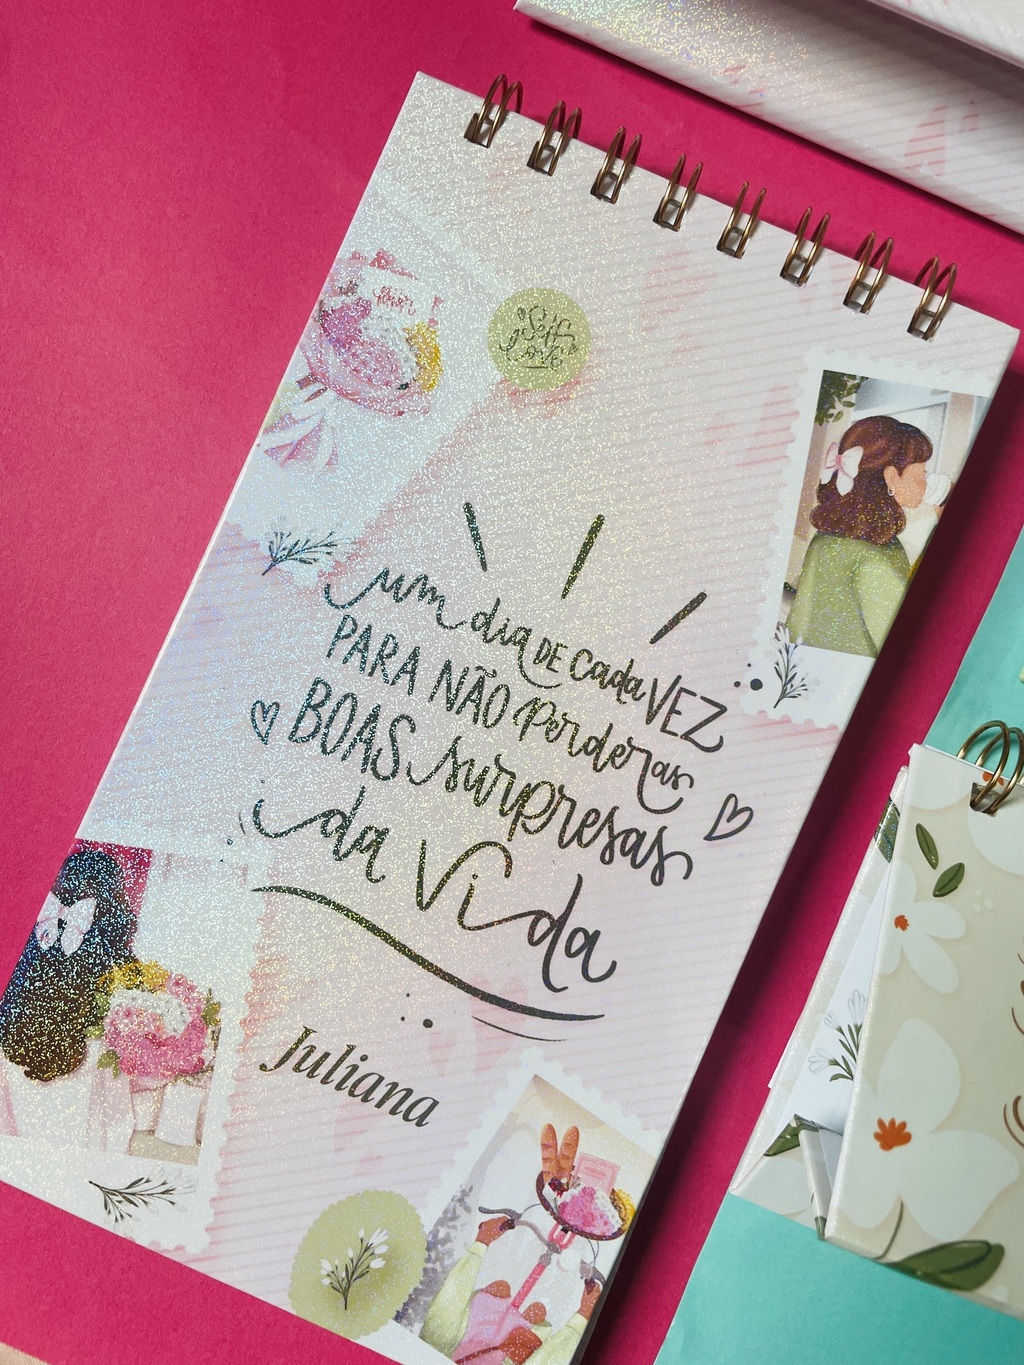 Self
Love
um dia DE cada VEZ
PARA NÃO Perder as
BOAS surpresas
da Vida
Juliana